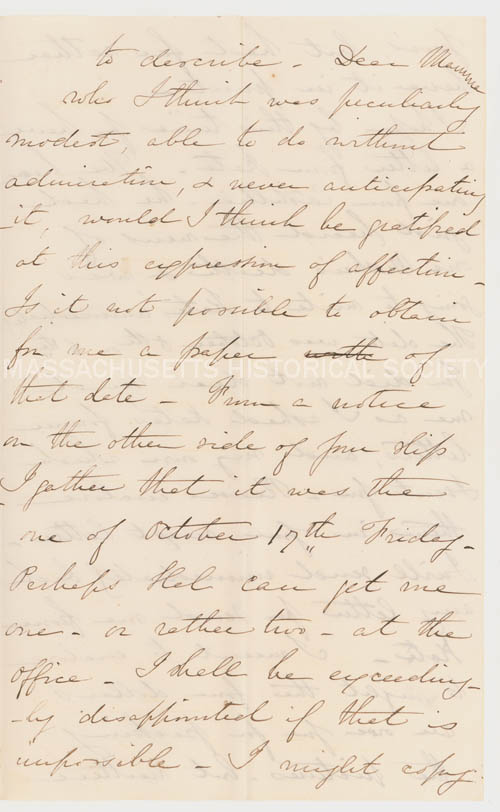 to describe - Dear Mamma
who I think was peculiarly
modest, able to do without
admiration, & never anticipating
it, would I think be gratified
at this expression of affection -
Is it not possible to obtain
for me a paper of
that date - From a notice
on the other side of your slip
I gather that it was the
one of October 17th Friday -
Perhaps Hal can get me
one - or rather two - at the
office - I shall be exceeding-
-ly disappointed if that is
impossible - I might copy
MASSACHUSETTS HISTORICAL SOCIETY